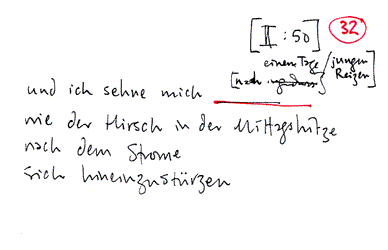 [II : 50] 32
einem Tage / jungen
[nach Reizen]
und ich sehne mich
wie der Hirsch in der Mittagshitze
nach dem Strome
sich hineinzustürzen